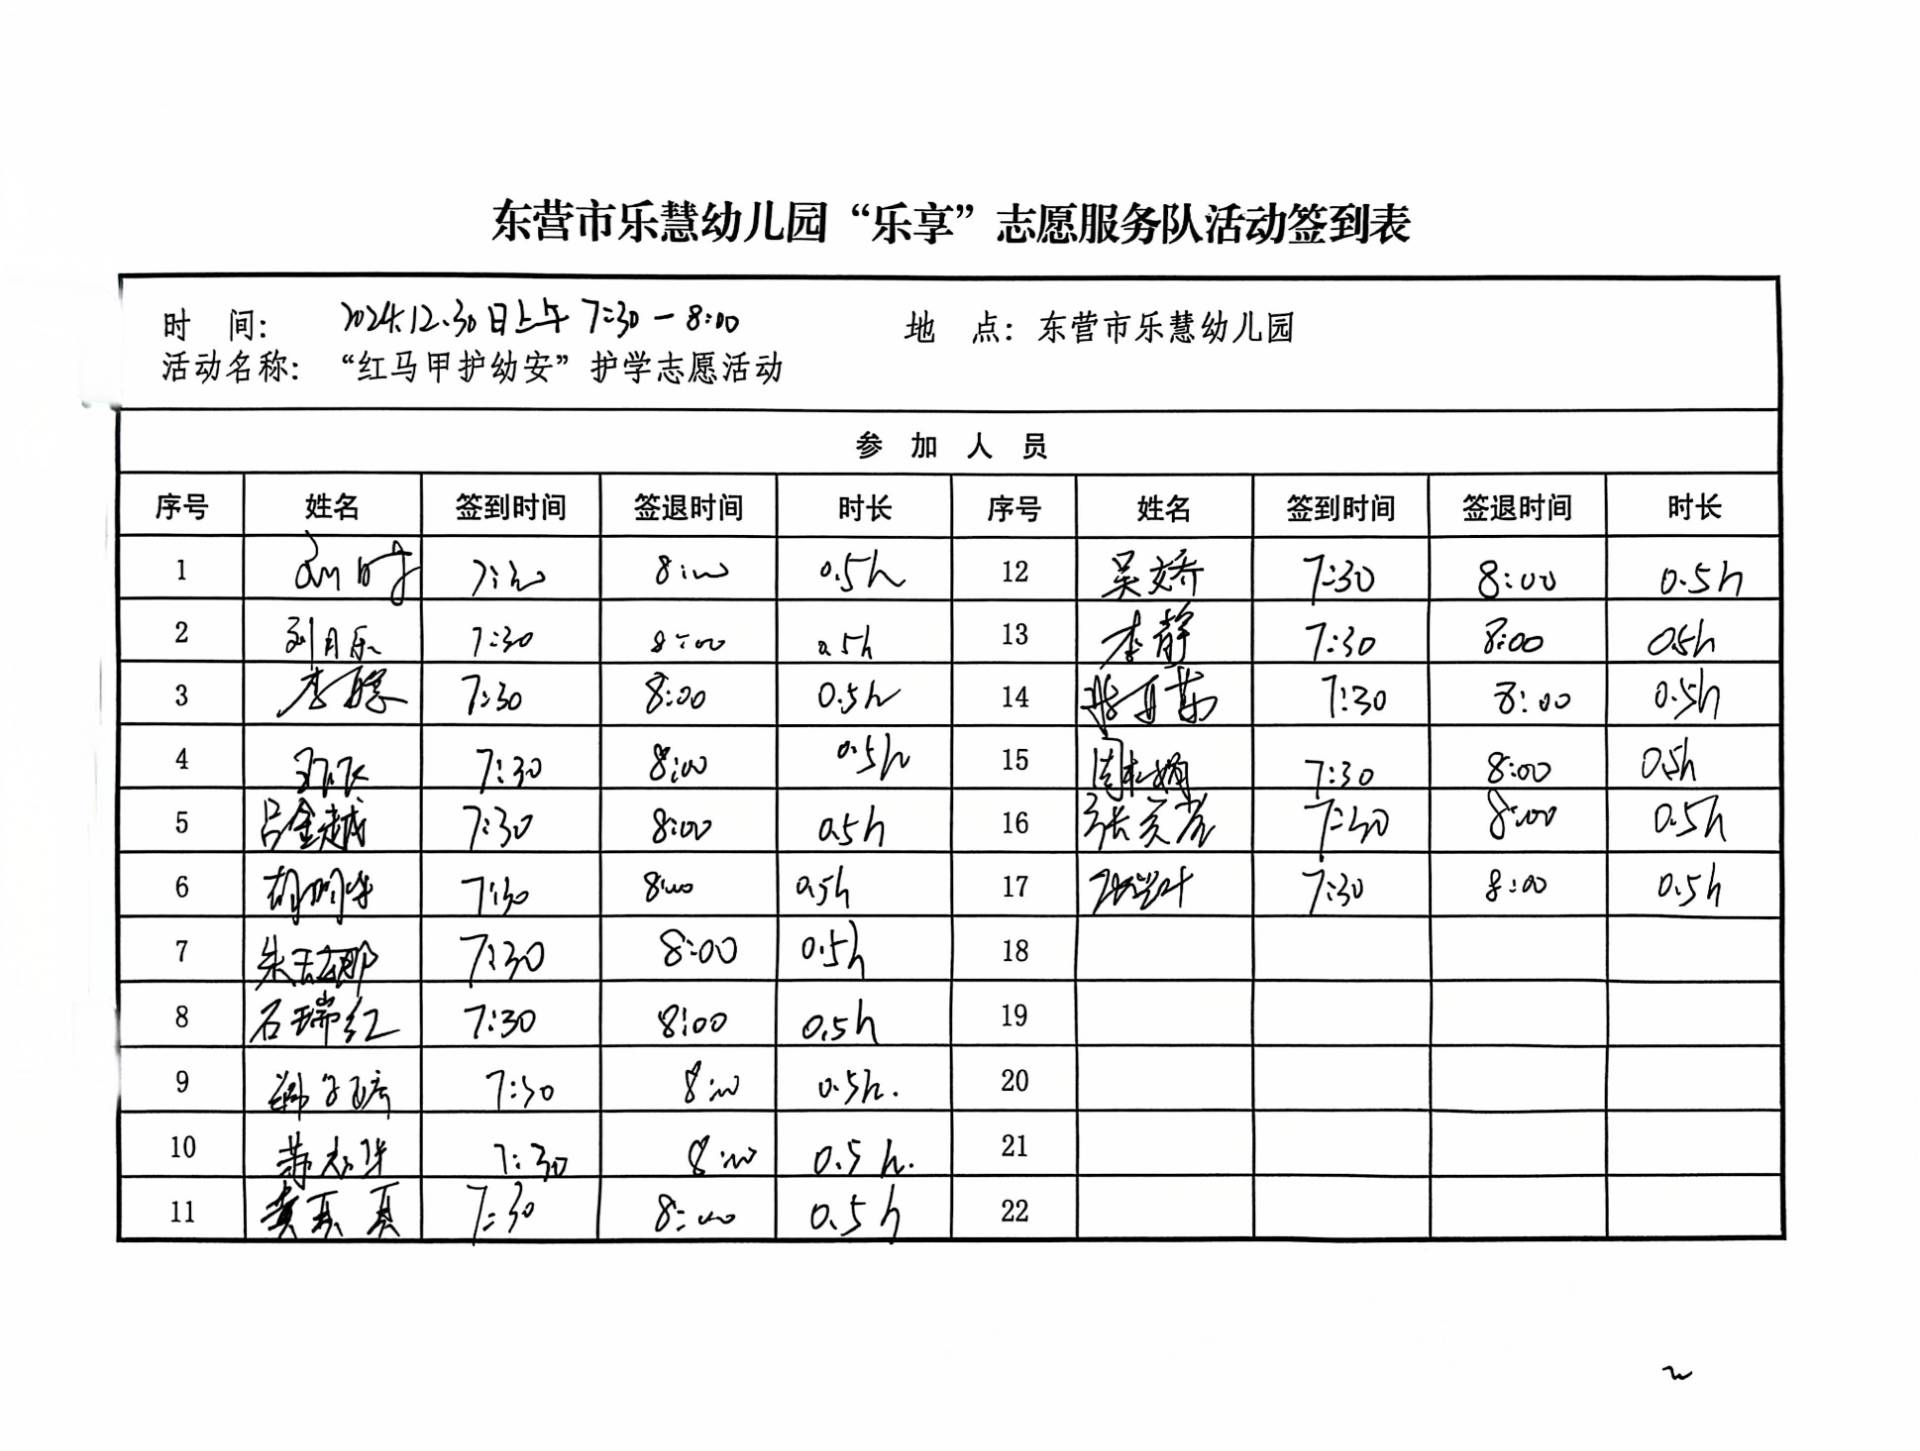 东营市乐慧幼儿园“乐享”志愿服务队活动签到表
时 间： 2024.12.30日上午 7:30-8:00 地 点：东营市乐慧幼儿园
活动名称：“红马甲护幼安”护学志愿活动
参 加 人 员
序号 姓名 签到时间 签退时间 时长 序号 姓名 签到时间 签退时间 时长
1 7:30 8:00 0.5h 12 吴文娇 7:30 8:00 0.5h
2 刘月乐 7:30 8:00 0.5h 13 李静 7:30 8:00 0.5h
3 李 7:30 8:00 0.5h 14 7:30 8:00 0.5h
4 7:30 8:00 0.5h 15 7:30 8:00 0.5h
5 吕金越 7:30 8:00 0.5h 16 张 7:30 8:00 0.5h
6 胡明华 7:30 8:00 0.5h 17 7:30 8:00 0.5h
7 朱 7:30 8:00 0.5h 18
8 石瑞红 7:30 8:00 0.5h 19
9 7:30 8:00 0.5h. 20
10 7:30 8:00 0.5h. 21
11 7:30 8:00 0.5h 22